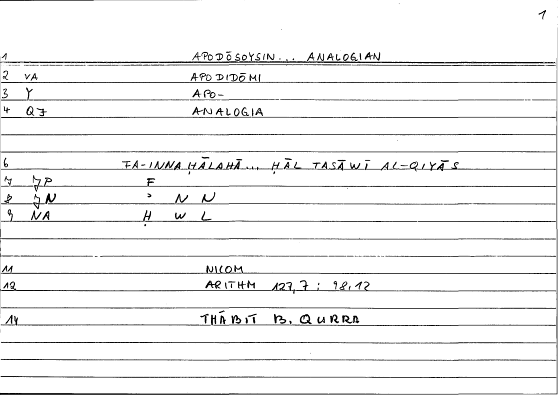 1
1 APODŌSOYSIN... ANALOGIAN
2 VA APODIDŌMI
3 Y APO-
4 QJ ANALOGIA
6 FA-INNA ḤĀLAHĀ... ḤĀL TASĀWĪ AL-QIYĀS
7 JP F
8 JN ʾ N N
9 NA Ḥ W L
11 NICOM
12 ARITHM 127,7 : 98,12
14 THĀBIT B. QURRA